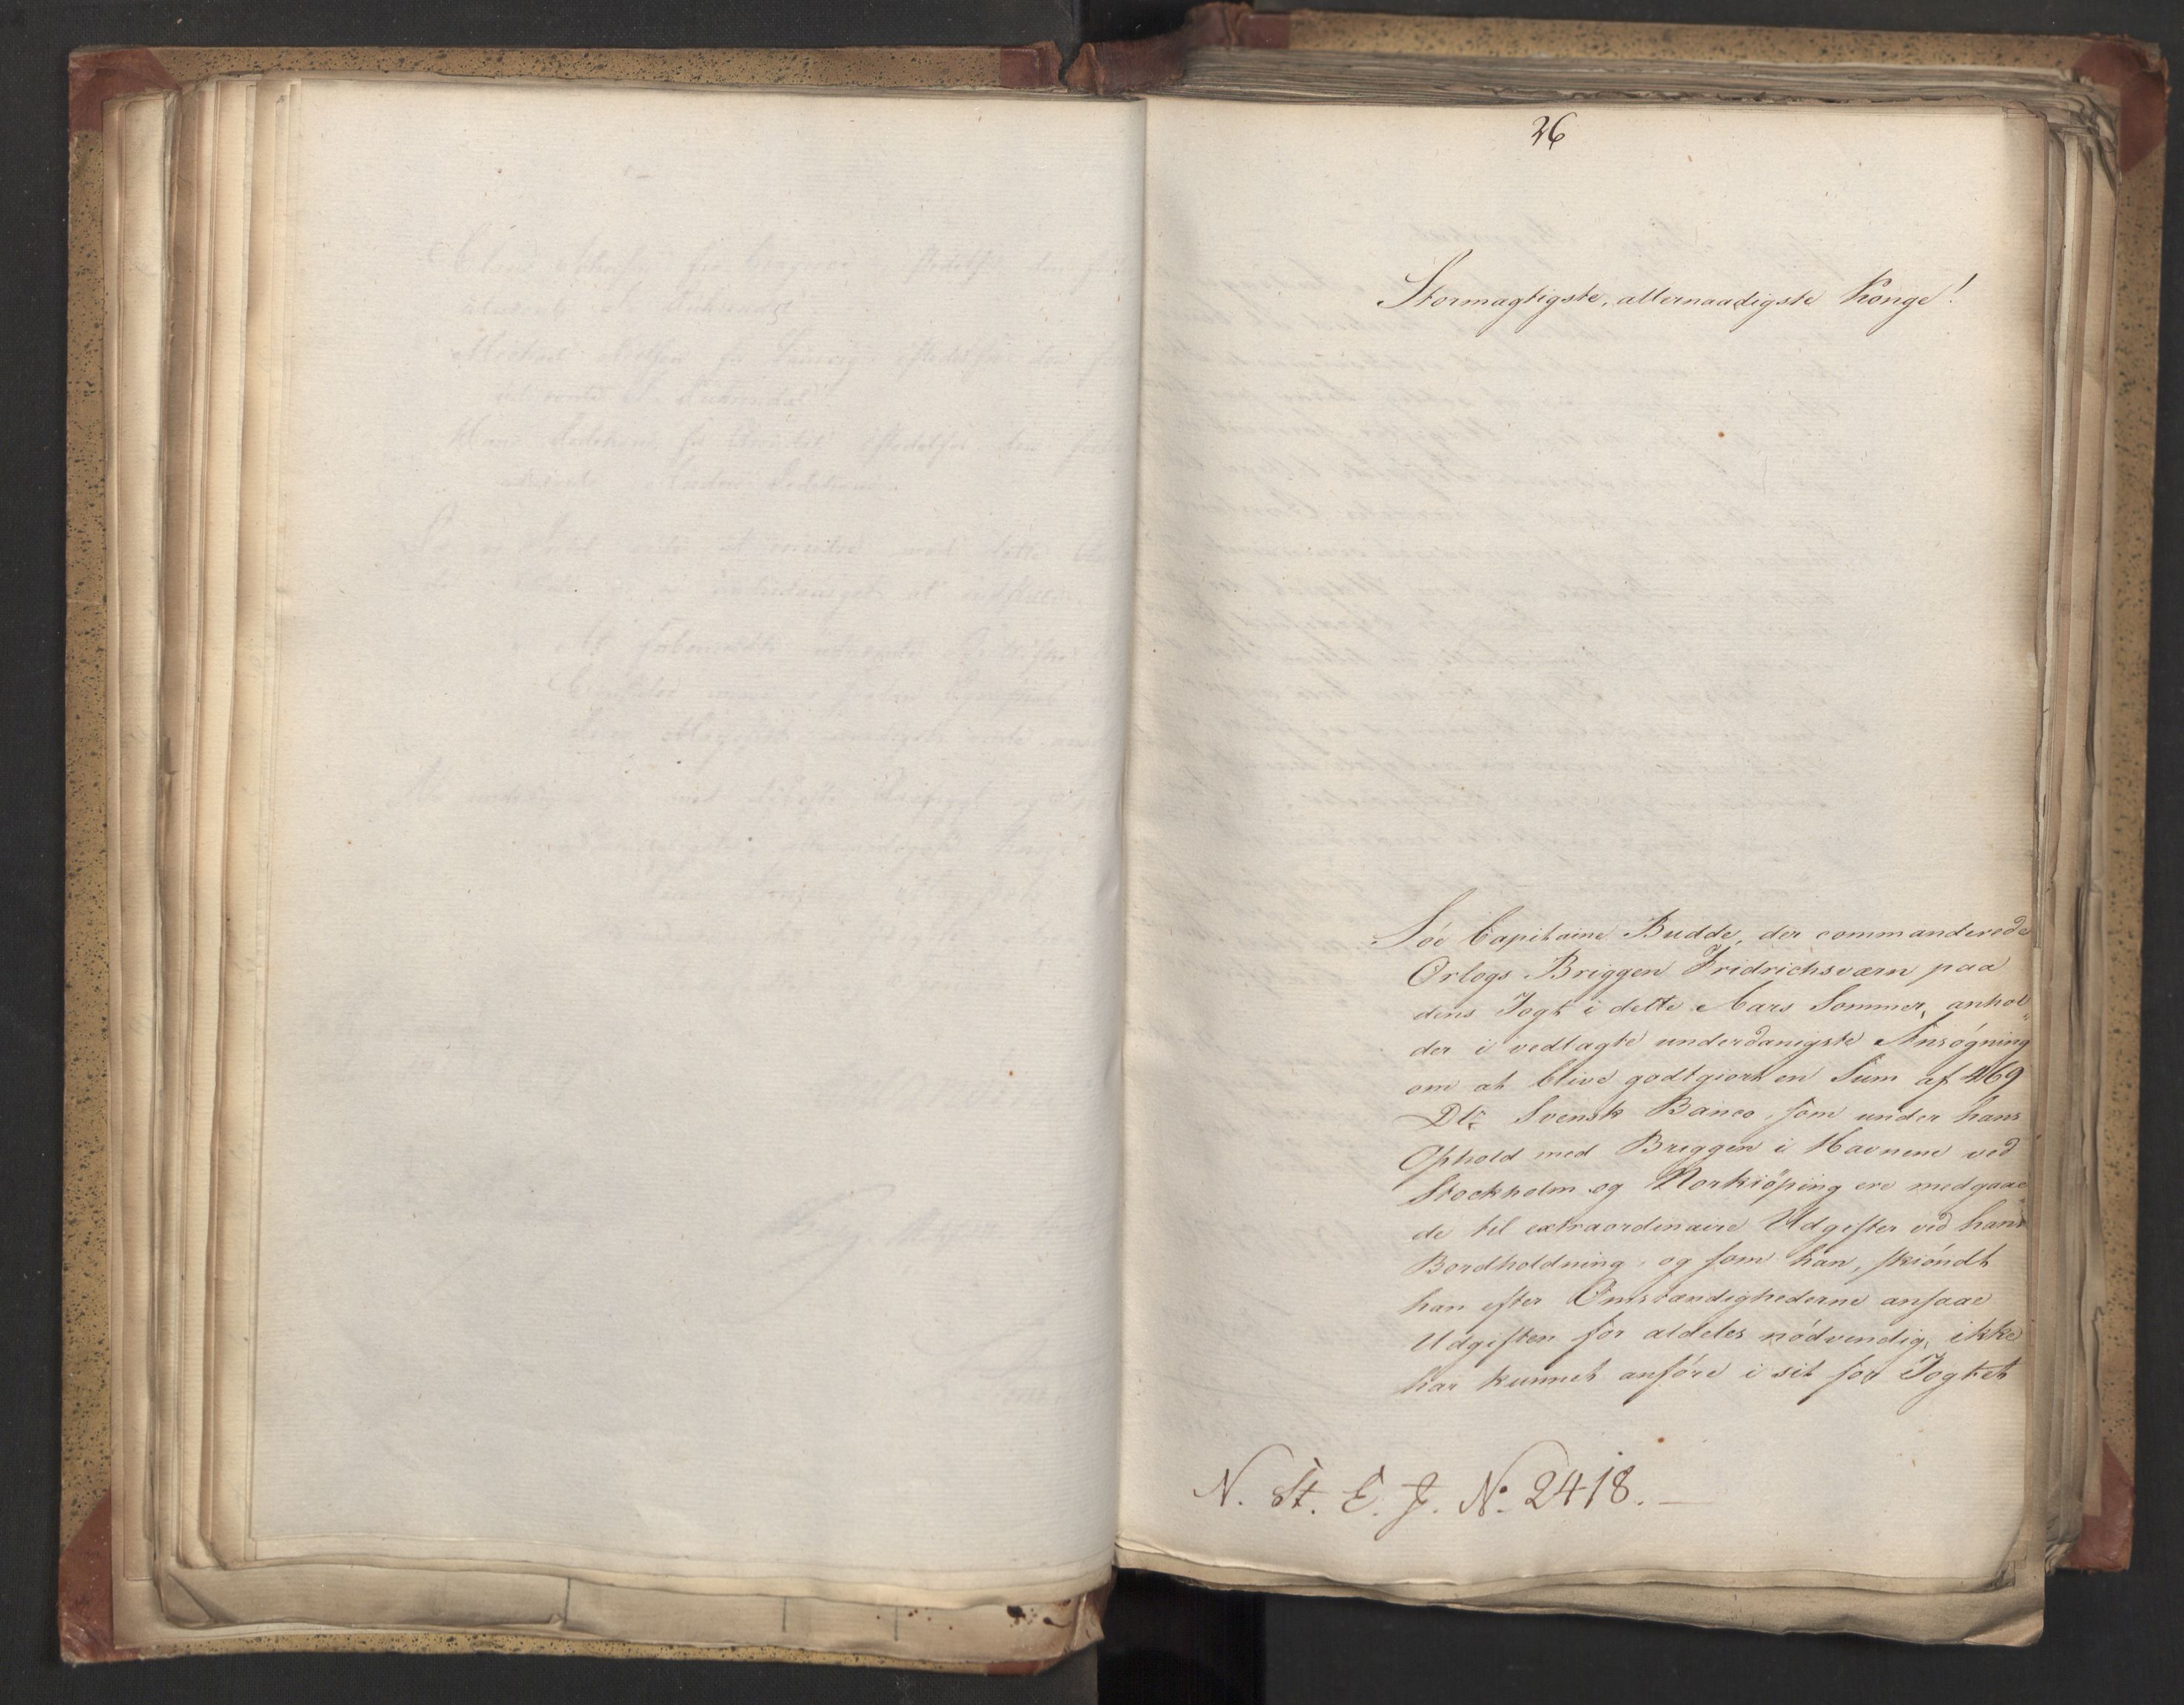 26
Stormægtigste, allernaadigste Konge!
Söe Capitaine Budde, der commanderede
Orlogs Briggen Fridrichsværn paa
dens Togt i dette Aars Sommer, anhol„
der i vedlagte underdanigste Ansögning
om at blive godtgiort en Sum af 469
Dlr Svensk Banco, som under hans
Ophold med Briggen i Havnene ved
Stockholm og Norkiöping ere medgaae„
de til extraordinaire Udgifter ved hans
Bordholdning, og som han, skiöndt
han efter Omstændighederne ansaae
Udgiften for aldeles nödvendig, ikke
har kunnet anföre i sit for Togtet
N. St. E. J. No. 2418.